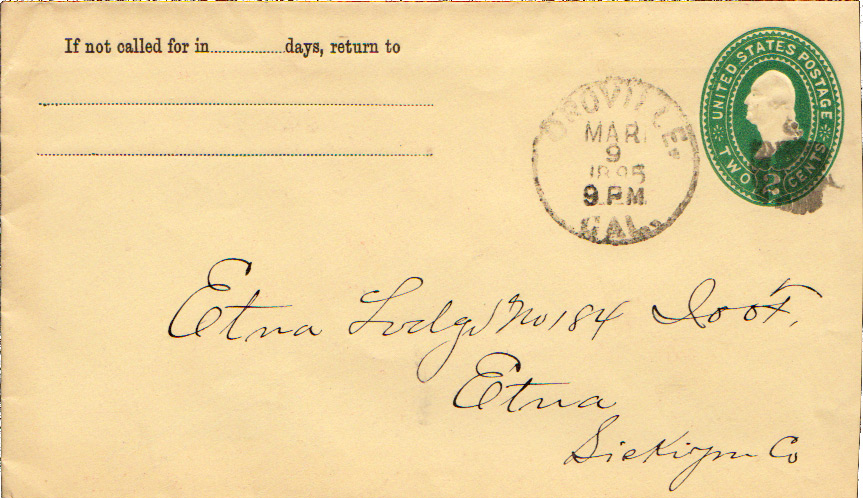 If not called for in..................days, return to
UNITED STATES POSTAGE
TWO 2 CENTS
OROVILLE,
MAR
9
1895
9 PM
CAL.
Etna Lodge No 184 IOOF,
Etna
Siskiyou Co